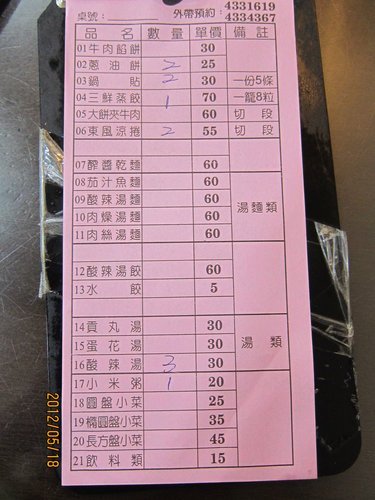 4331619
桌號：　外帶預約：4334367
品名 數量 單價 備註
01牛肉餡餅 30
02蔥油餅 2 25
03鍋貼 2 30 一份5條
04三鮮蒸餃 1 70 一籠8粒
05大餅夾牛肉 60 切段
06東風涼捲 2 55 切段
07酢醬乾麵 60
08茄汁魚麵 60
09酸辣湯麵 60 湯麵類
10肉燥湯麵 60
11肉絲湯麵 60
12酸辣湯餃 60
13水餃 5
14貢丸湯 30
15蛋花湯 30 湯類
16酸辣湯 3 30
17小米粥 1 20
18圓盤小菜 25
19橢圓盤小菜 35
20長方盤小菜 45
21飲料類 15
2012/05/18